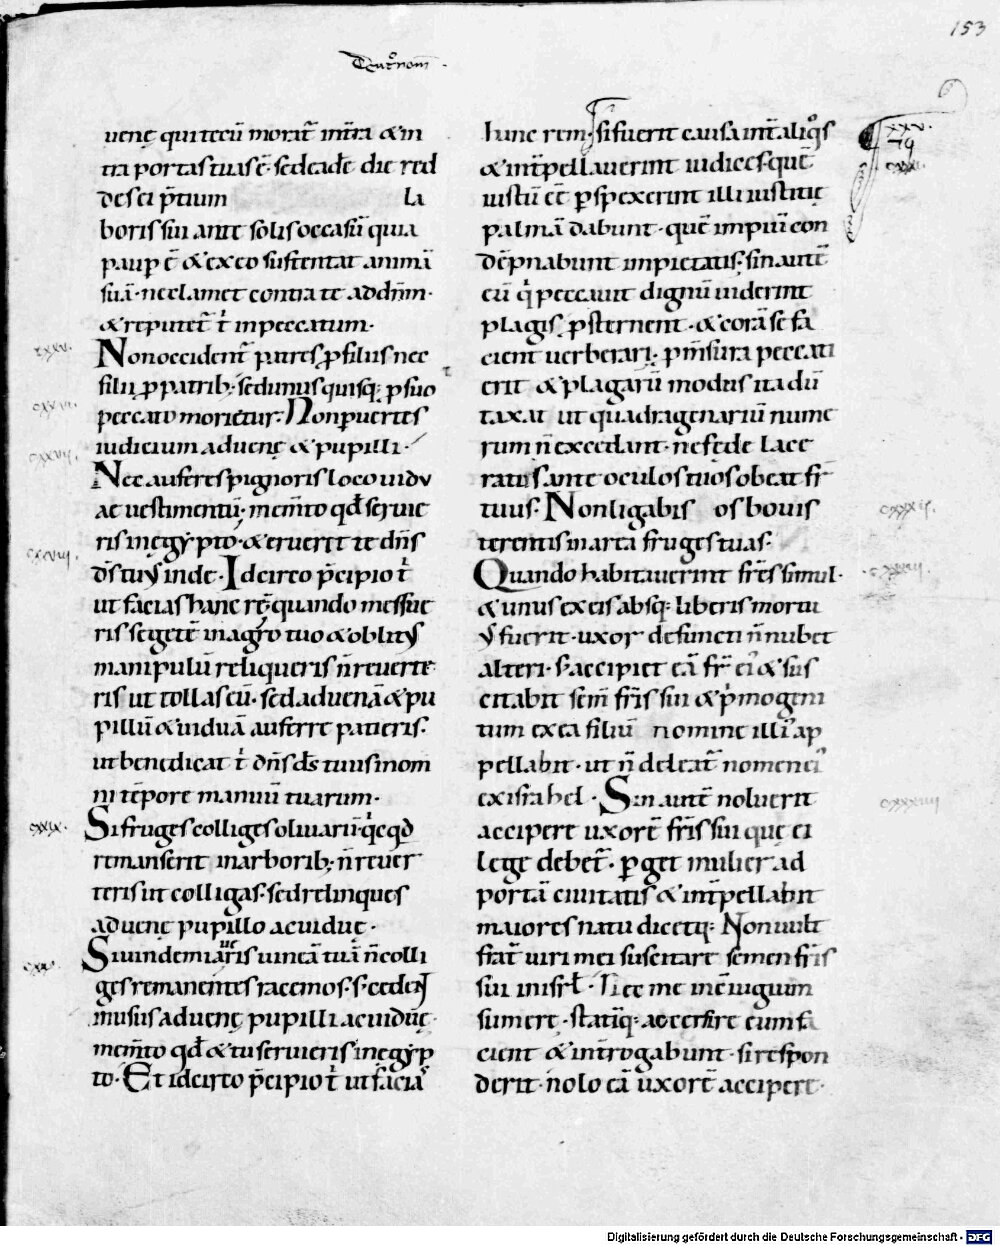 153
Deut̄ronom̄
uenę qui tecū morat̄ intra & in
tra portas tuas ē· sed eadē die red
des ei p̄tium la
boris sui ante solis occasū quia
paup ē & ex eo sustentat animā
suā· ne clamet contra te ad dn̄m·
& reputet̄ t̍ in peccatum·
Non occident̄ patres p filiis nec
filii p patrib; sed unus quisq; p suo
peccato moriet̄ur· Non puertes
iudicium aduenę & pupilli·
Nec auferes pignoris loco uidu
ae uestimentū· mem̄to qđ seruie
ris in egypto· & eruerit te dn̄s
ds̄ tuus inde· Idcirco p̄cipio t̍
ut facias hanc rē· quando messue
ris segetē in agro tuo & oblitus
manipulū reliqueris n̄ reuerte
ris ut tollas eū· sed aduenā & pu
pillū & uiduā auferre patieris·
ut benedicat t̍ dn̄s ds̄ tuus in om
ni tēpore manuū tuarum·
Si fruges colliges oliuarū· qcqd
remanserit in arborib; n̄ reuer
teris ut colligas· sed relinques
aduenę pupillo ac uiduę·
Si uindemiaueris uineā tuā n̄ colli
ges remanentes racemos· s; cedent
in usus aduenę pupilli ac uiduę·
mem̄to qđ & tu seruieris in egyp
to· Et idcirco p̄cipio t̍ ut facias
hanc rem· Si fuerit causa int̄ aliqos
& int̄pellauerint iudices· quē
iustū eē pspexerint illi iustitię
palmā dabunt· quē impiū con
dēpnabunt impietatis· sin autē
eū q̍ peccauit dignū uiderint
plagis, psternent· & corā se fa
cient uerberari· p m̄sura peccati
erit & plagarū modus ita dū
taxat ut quadragenariū nume
rum n̄ excedant· ne fęde lace
ratus ante oculos tuos obeat fr̄
tuus· Non ligabis os bouis
terentis in area fruges tuas·
Quando habitauerint fr̄es simul·
& unus ex eis absq; liberis mortu
us fuerit· uxor defuncti n̄ nubet
alteri· s; accipiet eā fr̄ ei & sus
citabit sem̄ fr̄is sui & p̍mogeni
tum ex ea filiū nomine illi ap
pellabit· ut n̄ deleat̄ nomen ei
ex israhel· Sin autē noluerit
accipere uxorē fr̄is sui quę ei
lege debet̄· pget mulier ad
portā ciuitatis & int̄pellabit
maiores natu dicetq; Non uult
frat̄ uiri mei suscitare semen fr̄is
sui in isrł· Nec me in c̄iugium
sumere· statiq; accersire eum fa
cient & int̄rogabunt· si respon
derit· nolo eā uxorē accipere·